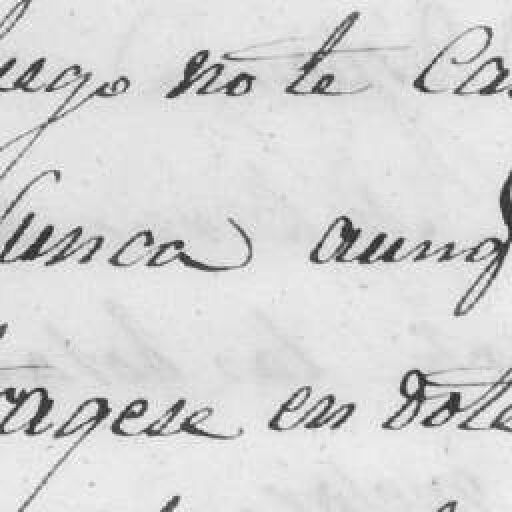 luego no te Ca
Nunca aunq
tragese en dote